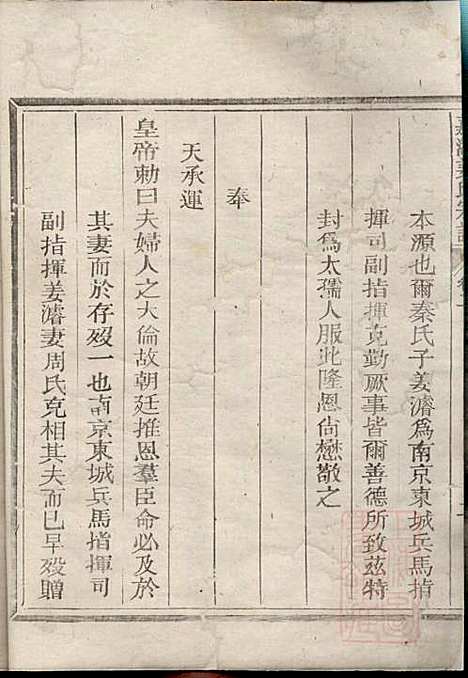 本源也爾秦氏子姜濬爲南京東城兵馬指
揮司副指揮克勤厥事皆爾善德所致兹特
封爲太孺人服此隆恩尙懋敬之
奉
天承運
皇帝勅曰夫婦人之大倫故朝廷推恩羣臣命必及於
其妻而於存歿一也南京東城兵馬指揮司
副指揮姜濬妻周氏克相其夫而已早歿贈